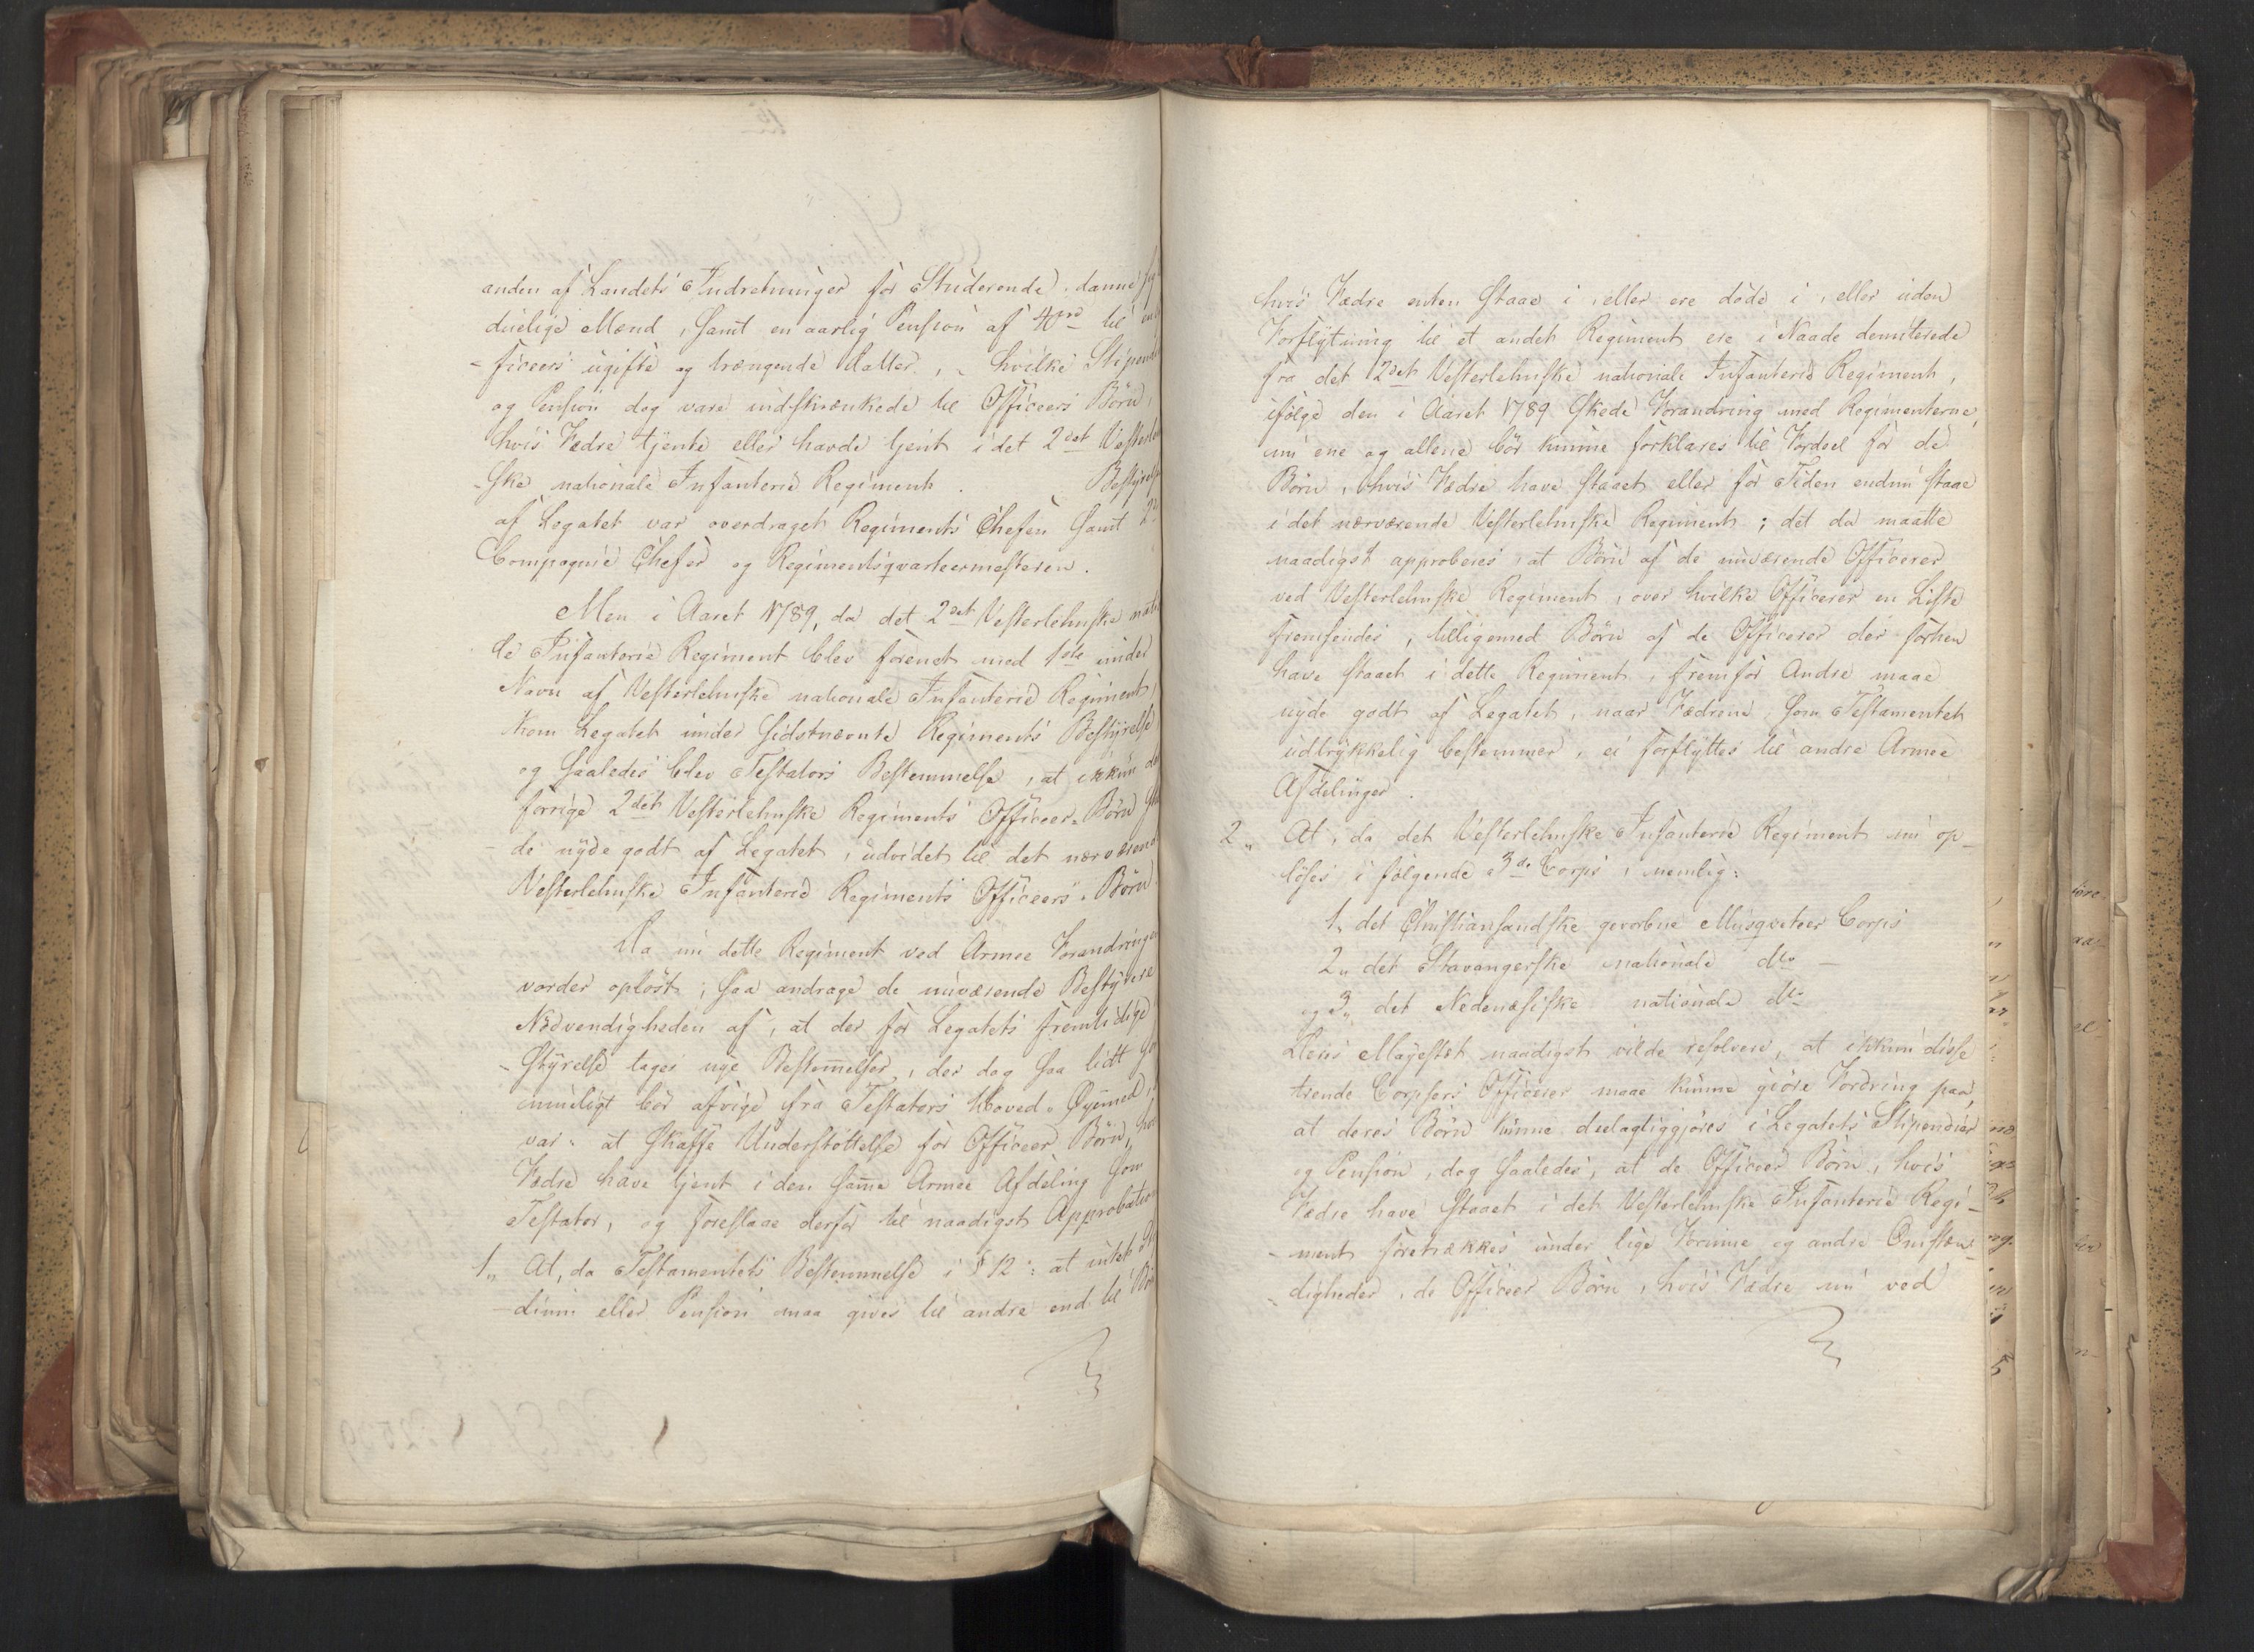 anden af Landets Indretninger for Studerende, danne sig
duelige Mænd, samt en aarlig Pension af til
ficeers ugifte og trængende Datter, hvilke Stipendi
og Pension dog vare indskrænkede til Officeers Børn,
hvis Fædre tjente eller havde tjent i det 2det Vesterleh
ske nationale Infanterie Regiment. Bestyrels
af Legatet var overdraget Regiments Chefen samt 2de
Compagnie Chefer og Regimentsqvarteermesteren.
Men i Aaret 1789, da det 2det Vesterlehnske natio
le Infanterie Regiment blev forenet med 1ste under
Navn af Vesterlehnske nationale Infanterie Regiment,
kom Legatet under sidstnævnte Regiments Bestyrelse
og saaledes blev Testators Bestemmelse, at ikkun de
forrige 2det Vesterlehnske Regiments Officeer-Børn
de nyde godt af Legatet, udvidet til det nærværend
Vesterlehnske Infanterie Regiments Officeers-Børn
Da nu dette Regiment ved Armee Forandringen
vorder opløst, saa andrage de nuværende Bestyrere
Nødvendigheden af, at der for Legatets fremtidige
styrelse tages nye Bestem̄elser, der dog saa lidt som
mueligt bør afvige fra Testators Hoved-Øyemed,
var: at skaffe Understøttelse for Officeer Børn,
Fædre have tjent i den sam̄e Armee Afdeling som
Testator, og foreslaae derfor til naadigst Approbation
1,, At, da Testamentets Bestemmelse i § 12: at intet
dium eller Pension maa gives til andre end til
hvis Fædre enten staae i, eller ere døde i, eller uden
Forflytning til et andet Regiment ere i Naade demitterede
fra det 2det Vesterlehnske nationale Infanterie Regiment,
ifølge den i Aaret 1789 skede Forandring med Regimenterne,
nu ene og allene bør kunne forklares til Fordeel for de
Børn, hvis Fædre have staaet eller for Tiden endnu staae
i det nærværende Vesterlehnske Regiment; det da maatte
naadigst approberes, at Børn af de nuværende Officerer
ved Vesterlehnske Regiment, over hvilke Officerer en Liste
fremsendes, tilligemed Børn af de Officerer der forhen
have staaet i dette Regiment, fremfor Andre maae
nyde godt af Legatet, naar Fædrene, som Testamentet
udtrykkelig bestemmer, ei forflyttes til andre Armee
Afdelinger.
2,, At, da det Vesterlehnske Infanterie Regiment nu op-
løses i følgende 3de Corps, nemlig:
1, det Christiansandske gevorbne Musqveteer Corps
2,, det Stavangerske nationale do —
og 3,, det Nedenæsiske nationale do
Deres Mayestæt naadigst vilde resolvere, at ikkun disse
trende Corpsers Officerer maae kunne giøre Fordring paa,
at deres Børn kunne deelagtiggjøres i Legatets Stipendier
og Pension, dog saaledes, at de Officeer Børn, hvis
Fædre have staaet i det Vesterlehnske Infanterie Regi-
ment foretrækkes under lige Forinne og andre Omstæn-
digheder, de Officeer Børn, hvis Fædre nu ved